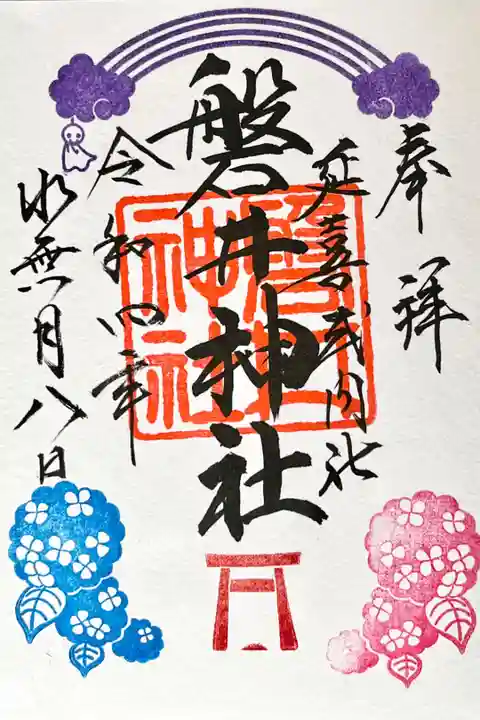 奉拝
延喜式内社
磐井神社
磐井神社
令和四年
水無月八日